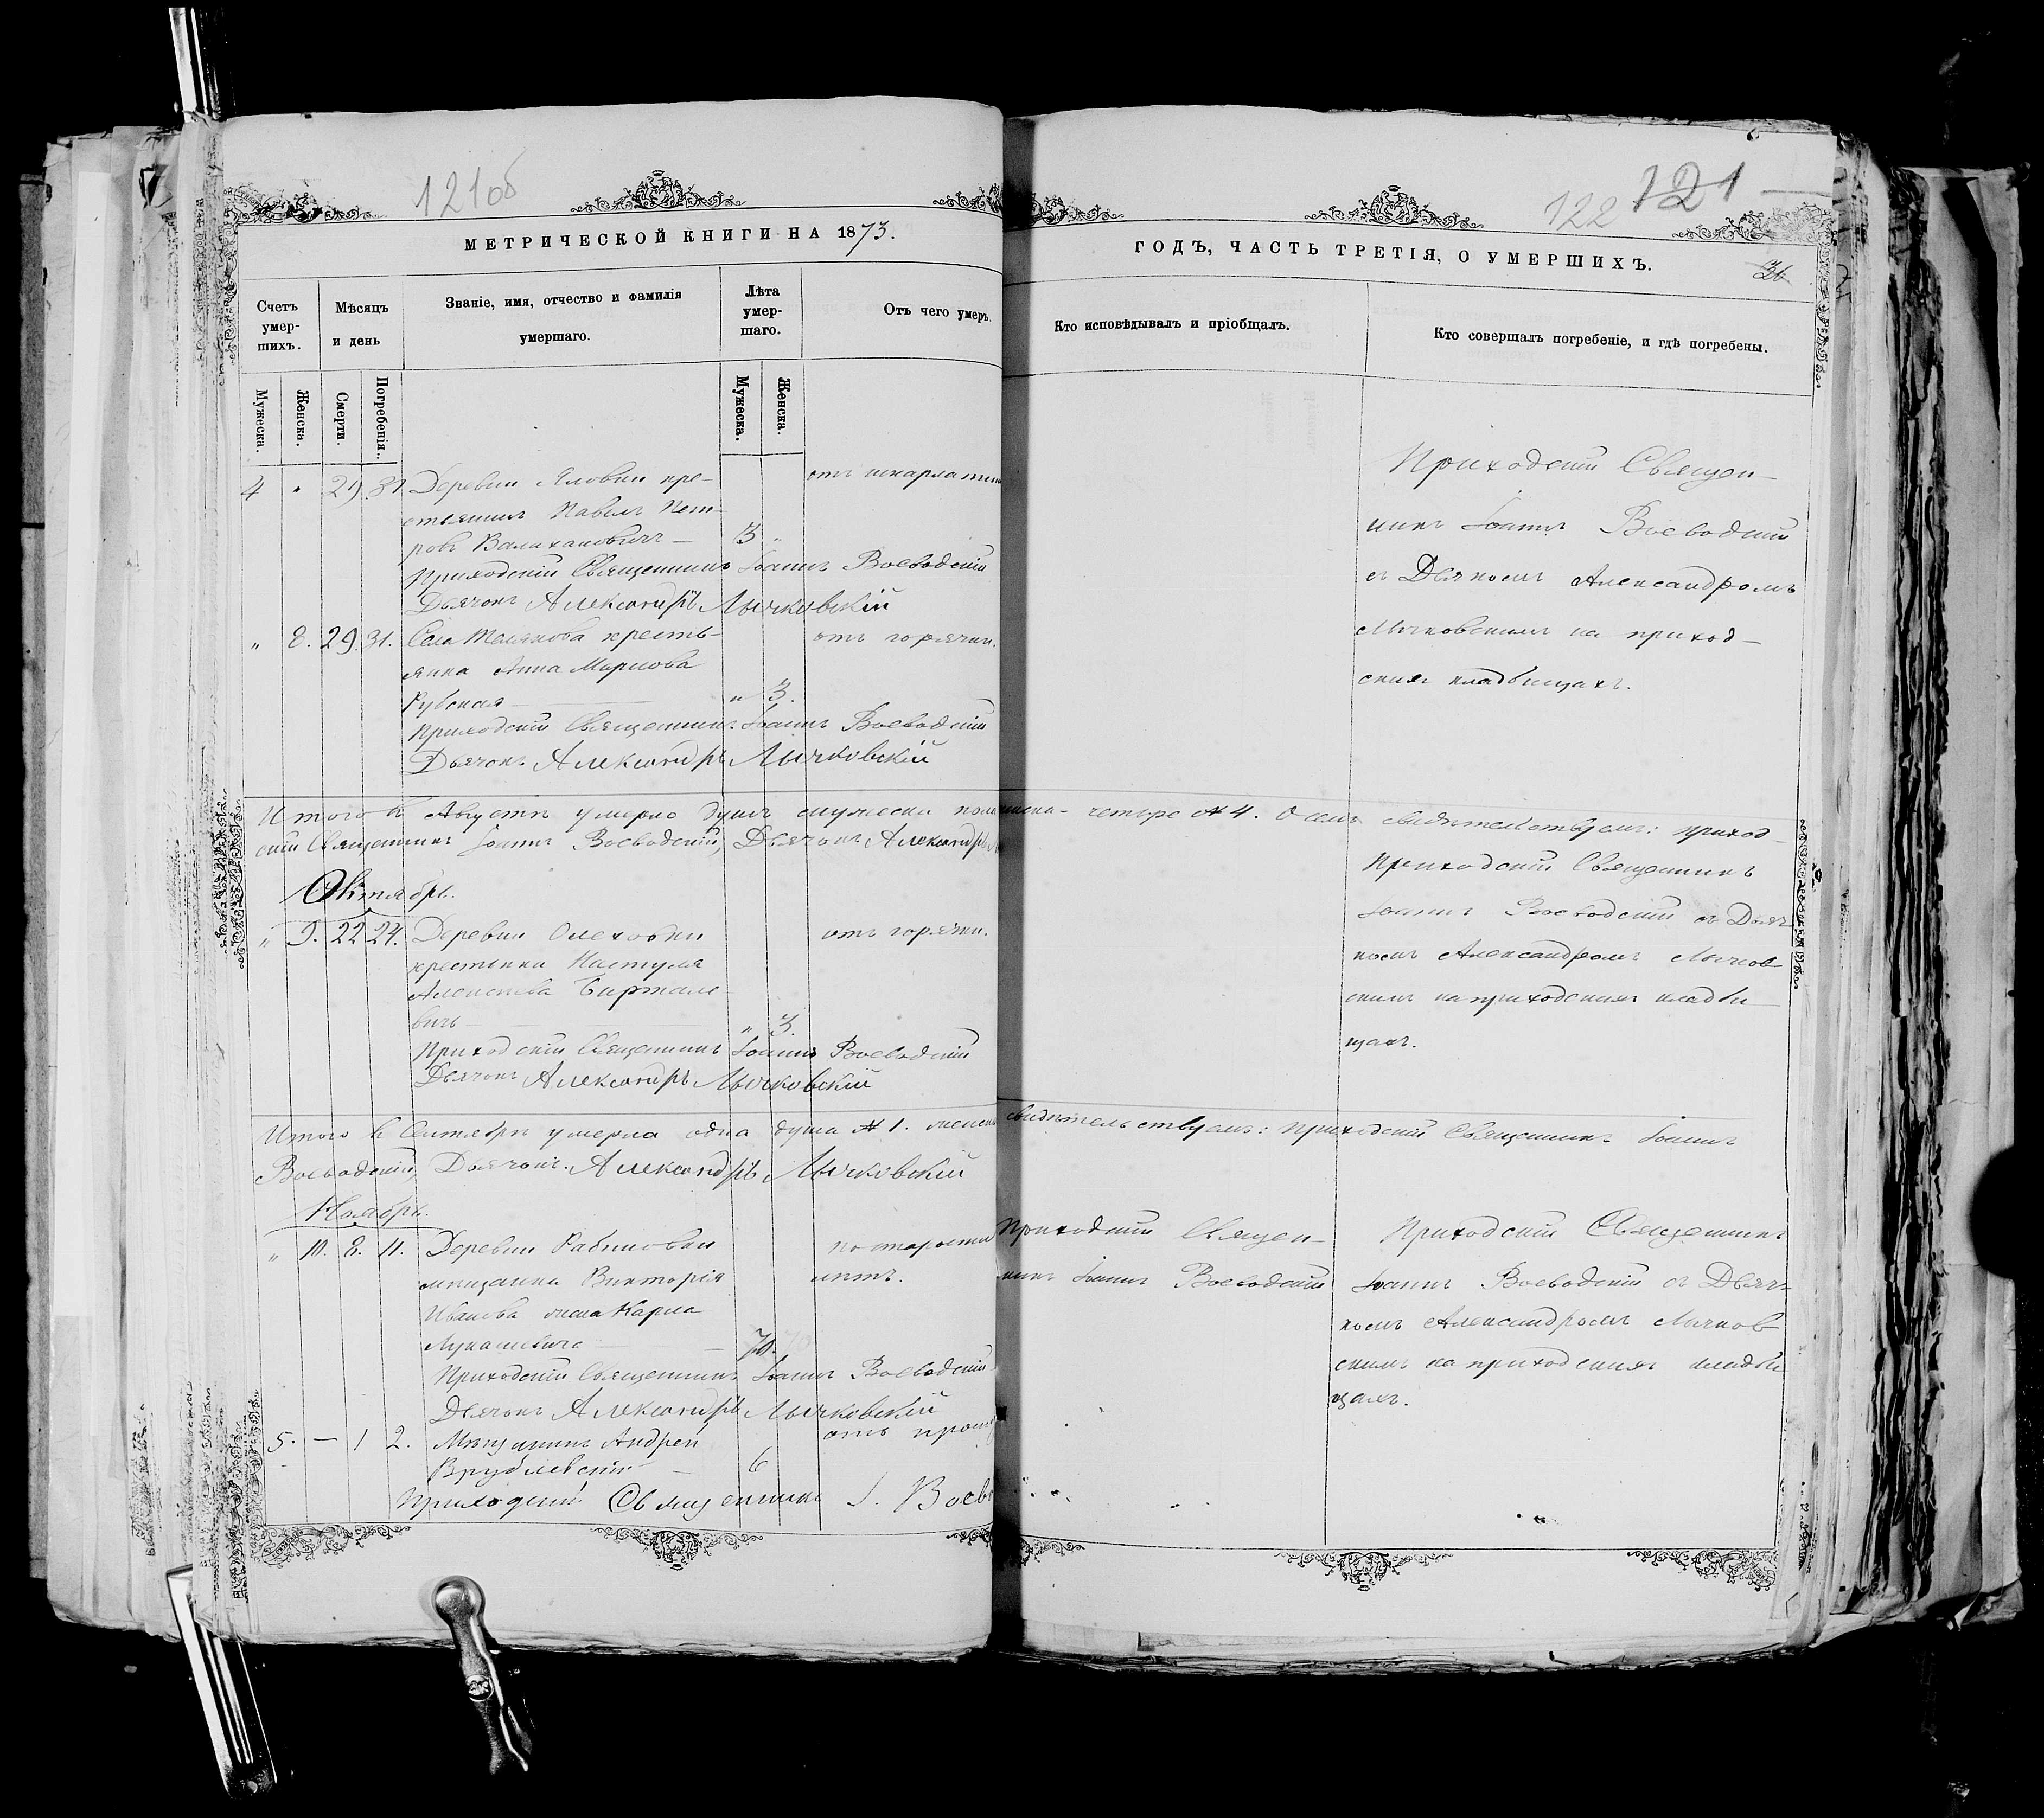 121об
122 121
МЕТРИЧЕСКОЙ КНИГИ НА 1873.
ГОДЪ, ЧАСТЬ ТРЕТІЯ, О УМЕРШИХЪ.
36
Счетъ умер-шихъ.
Мѣсяцъ и день
Званіе, имя, отчество и фамилія умершаго.
Лѣта умер-шаго.
Отъ чего умеръ.
Кто исповѣдывалъ и пріобщалъ.
Кто совершалъ погребеніе, и гдѣ погребены.
Мужеска.
Женска.
Смерти.
Погребенія.
Мужеска.
Женска.
4 " 29. 31. Деревни Яловки кре-
стьянинъ Павелъ Пет-
ровъ 3 "
отъ скарлатин
Приходскій Священникъ Іоаннъ Воеводскій
Дьячокъ Александръ Лычковскій
Приходскій Священ-
никъ Іоаннъ Воеводскій
съ Дьячкомъ Александромъ
Лычковскимъ на приход-
скихъ кладбищахъ.
" 8. 29. 31. Села кресть-
янка Анна Маркова
Рубская " 3.
отъ горячки.
Приходскій Священникъ Іоаннъ Воеводскій
Дьячокъ Александръ Лычковскій
Итого въ Августѣ умерло душъ мужеска пола женска - четыре № 4. О семъ свидѣтельствуемъ: приход-
скій Священникъ Іоаннъ Воеводскій, Дьячокъ Александръ
Октябрь.
" 9. 22 24. Деревни Олеховки
крестьянка Настуля
Алексѣева
вичъ " 3.
отъ горячки.
Приходскій Священникъ Іоаннъ Воеводскій
Дьячокъ Александръ Лычковскій
Приходскій Священникъ
Іоаннъ Воеводскій съ Дьяч-
комъ Александромъ Лычков-
скимъ на приходскихъ кладби-
щахъ.
Итого въ Сентябрѣ умерла одна душа № 1. женск свидѣтельствуемъ: Приходскій Священникъ Іоаннъ
Воеводскій, Дьячокъ Александръ Лычковскій
Ноябрь.
" 10. 8. 11. Деревни
мѣщанка Викторія
Иванова жена Карла
Лукашевича 70. 70
по старости
лѣтъ.
Приходскій Священ-
никъ Іоаннъ Воеводскій
Приходскій Священникъ
Іоаннъ Воеводскій съ Дьяч-
комъ Александромъ Лычков
скимъ на приходскихъ кладби
щахъ.
Приходскій Священникъ Іоаннъ Воеводскій
Дьячокъ Александръ Лычковскій
5. — 1 2. Мѣщанинъ Андрей
Врублевскій — 6
отъ
Приходскій Священникъ І. Воев